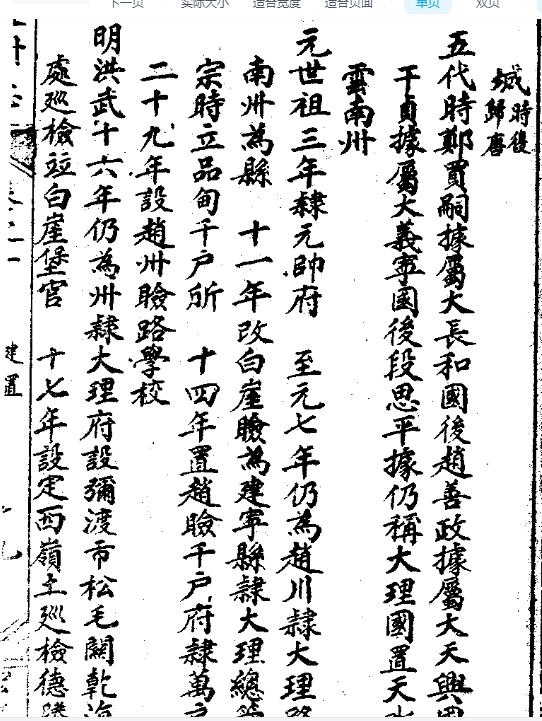 下一页 实际大小 适合宽度 适合页面 单页 双页
城時後
歸唐
五代時鄭買嗣據屬大長和國後趙善政據屬大天興國
干貞據屬大義寧國後段思平據仍稱大理國置天水
雲南州
元世祖三年隸元帥府 至元七年仍為趙川隸大理路
南州為縣 十一年改白崖瞼為建寧縣隸大理總管
宗時立品甸千戶所 十四年置趙瞼千戶府隸萬戶
二十九年設趙州瞼路學校
明洪武十六年仍為州隸大理府設彌渡市松毛關乾海
處巡檢竝白崖堡官 十七年設定西嶺土巡檢德勝
建置